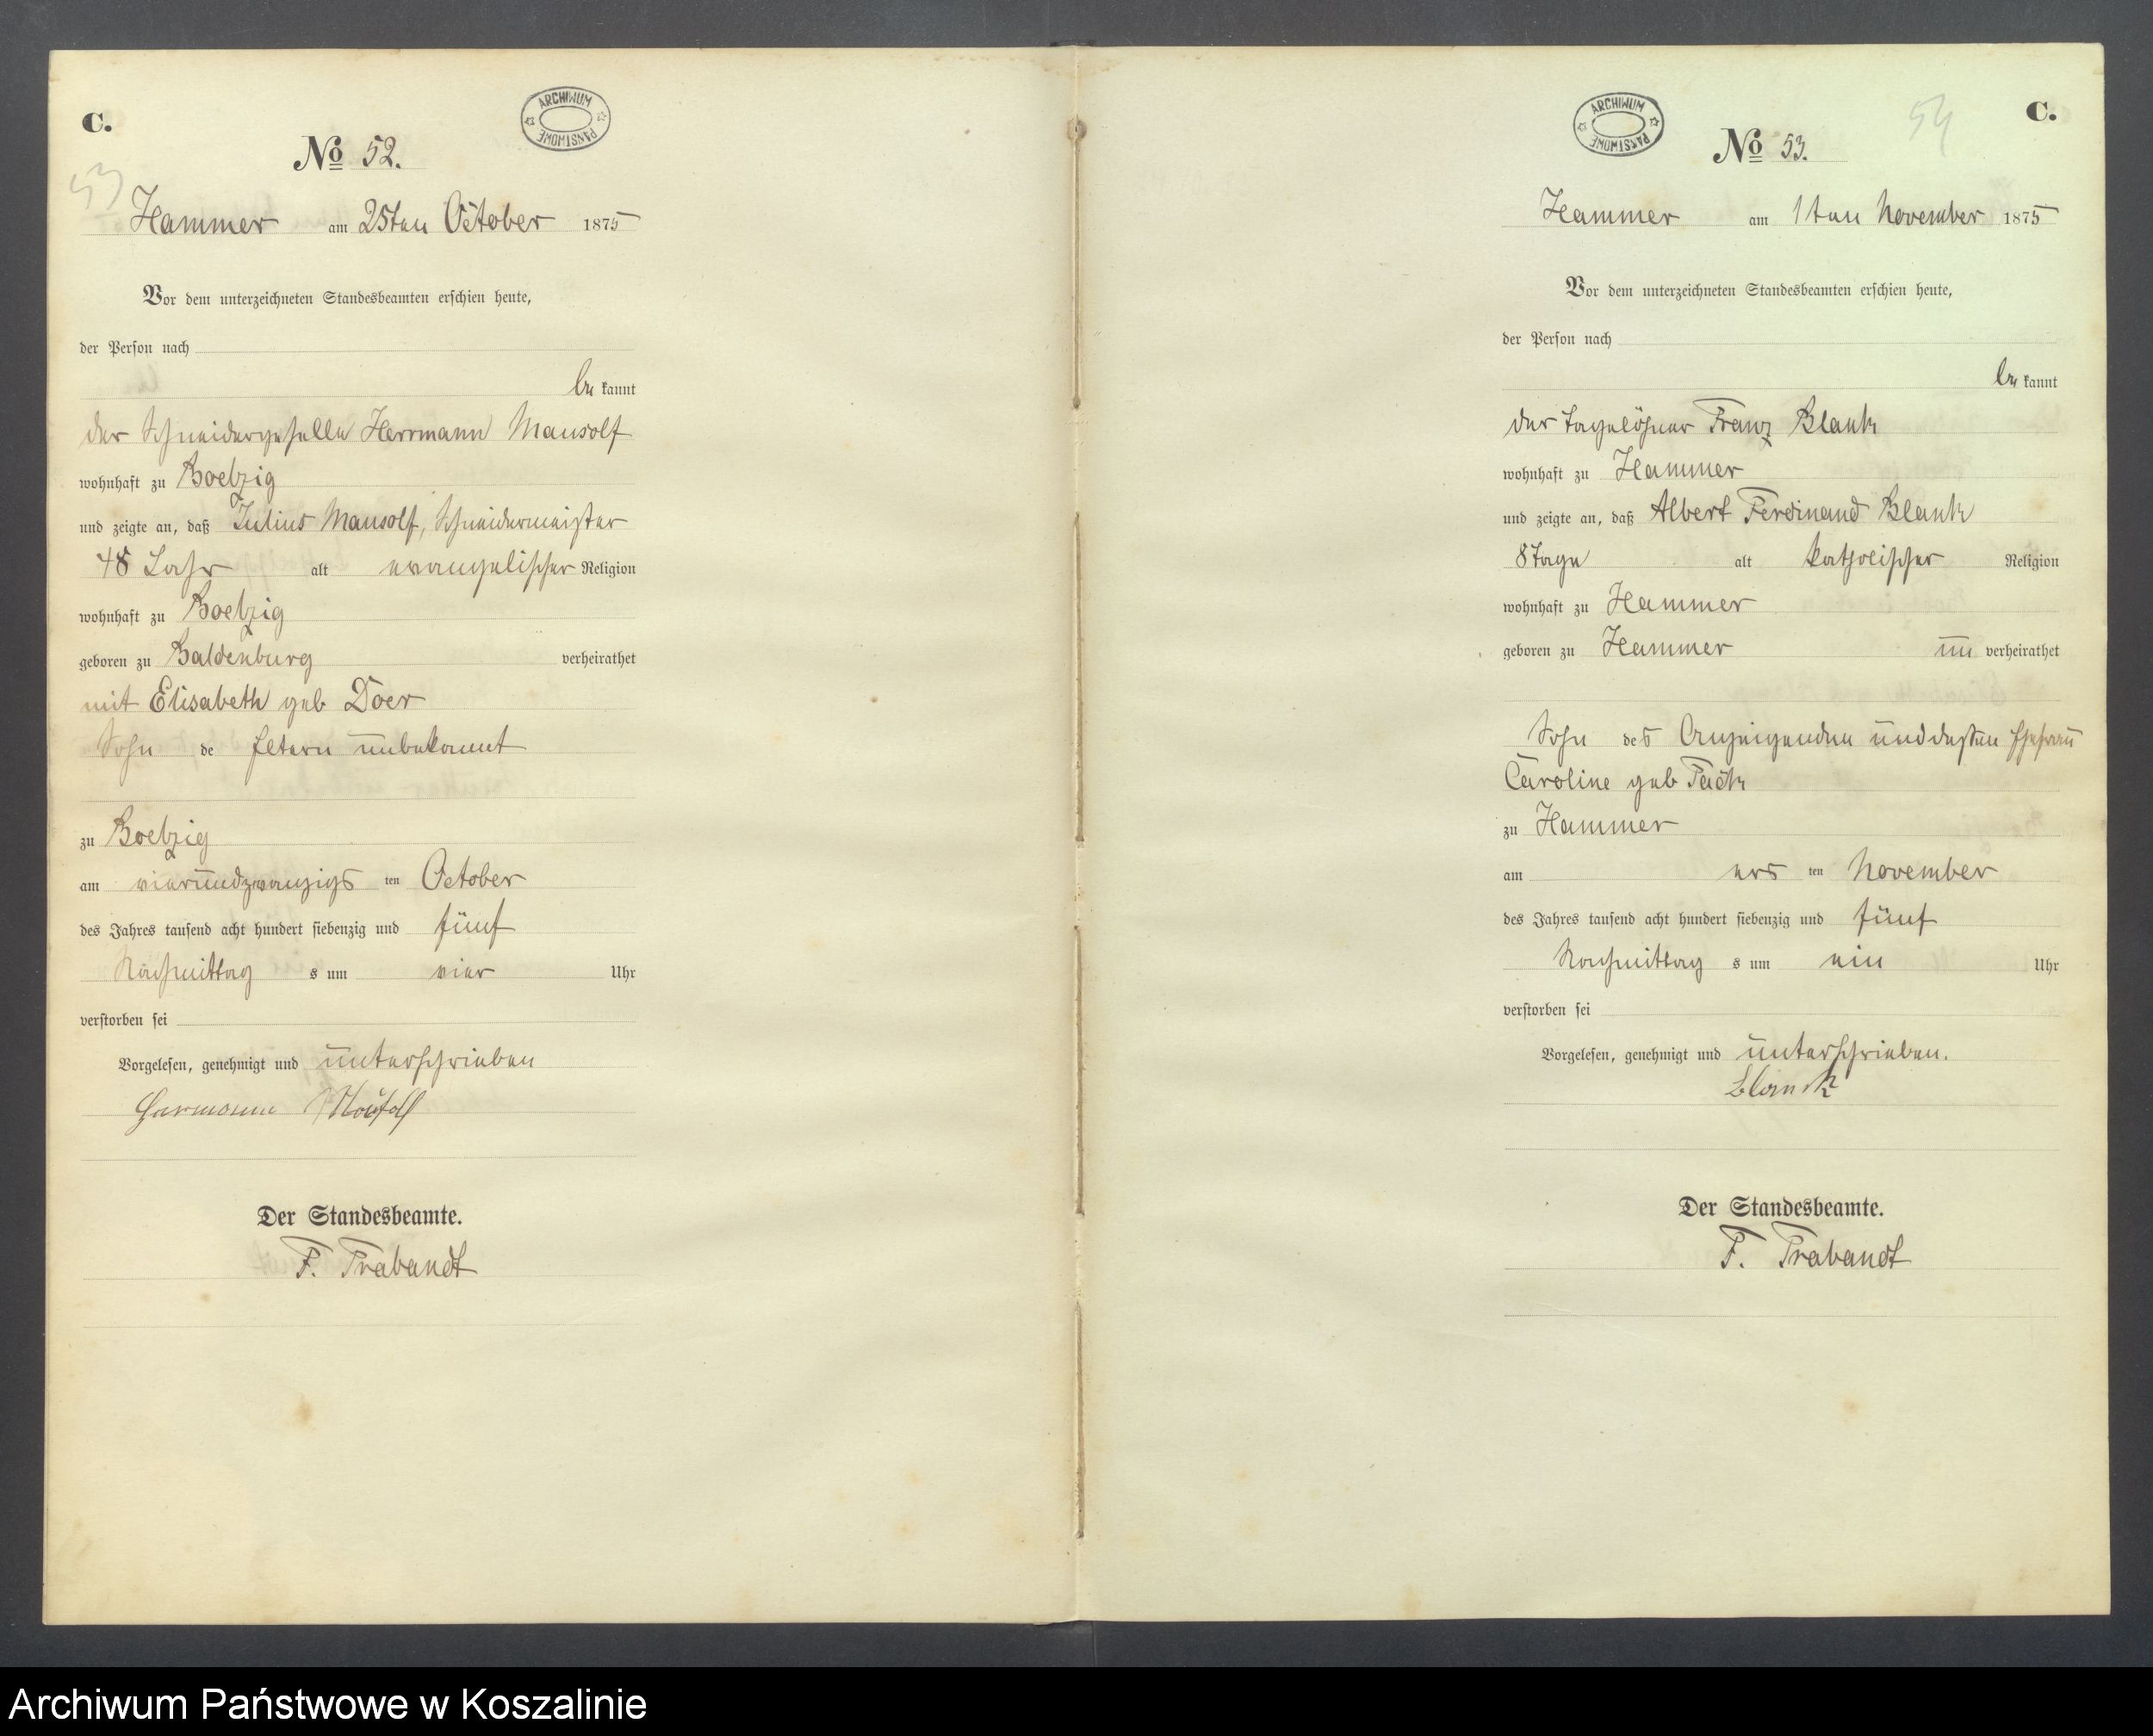 C.
ARCHIWUM PAŃSTWOWE
No 52.
53
Hammer am 25ten October 1875
Vor dem unterzeichneten Standesbeamten erschien heute,
der Person nach
be kannt
der Schneidergeselle Herrmann Mansolf
wohnhaft zu Boelzig
und zeigte an, daß Julius Mansolf, Schneidermeister
48 Jahr alt evangelischer Religion
wohnhaft zu Boelzig
geboren zu Baldenburg verheirathet
mit Elisabeth geb Doer
Sohn de Eltern unbekannt
zu Boelzig
am vierundzwanzigs ten October
des Jahres tausend acht hundert siebenzig und fünf
Nachmittag s um vier Uhr
verstorben sei
Vorgelesen, genehmigt und unterschrieben
Hermann
Der Standesbeamte.
F. Trabandt
C.
54
ARCHIWUM PAŃSTWOWE
No 53.
Hammer am 1ten November 1875
Vor dem unterzeichneten Standesbeamten erschien heute,
der Person nach
be kannt
der Tagelöhner Franz Blank
wohnhaft zu Hammer
und zeigte an, daß Albert Ferdinand Blank
8 Tage alt katholischer Religion
wohnhaft zu Hammer
geboren zu Hammer un verheirathet
Sohn des Anzeigenden und dessen Ehefrau
Caroline geb
zu Hammer
am ers ten November
des Jahres tausend acht hundert siebenzig und fünf
Nachmittag s um ein Uhr
verstorben sei
Vorgelesen, genehmigt und unterschrieben.
Blanck
Der Standesbeamte.
F. Trabandt
Archiwum Państwowe w Koszalinie